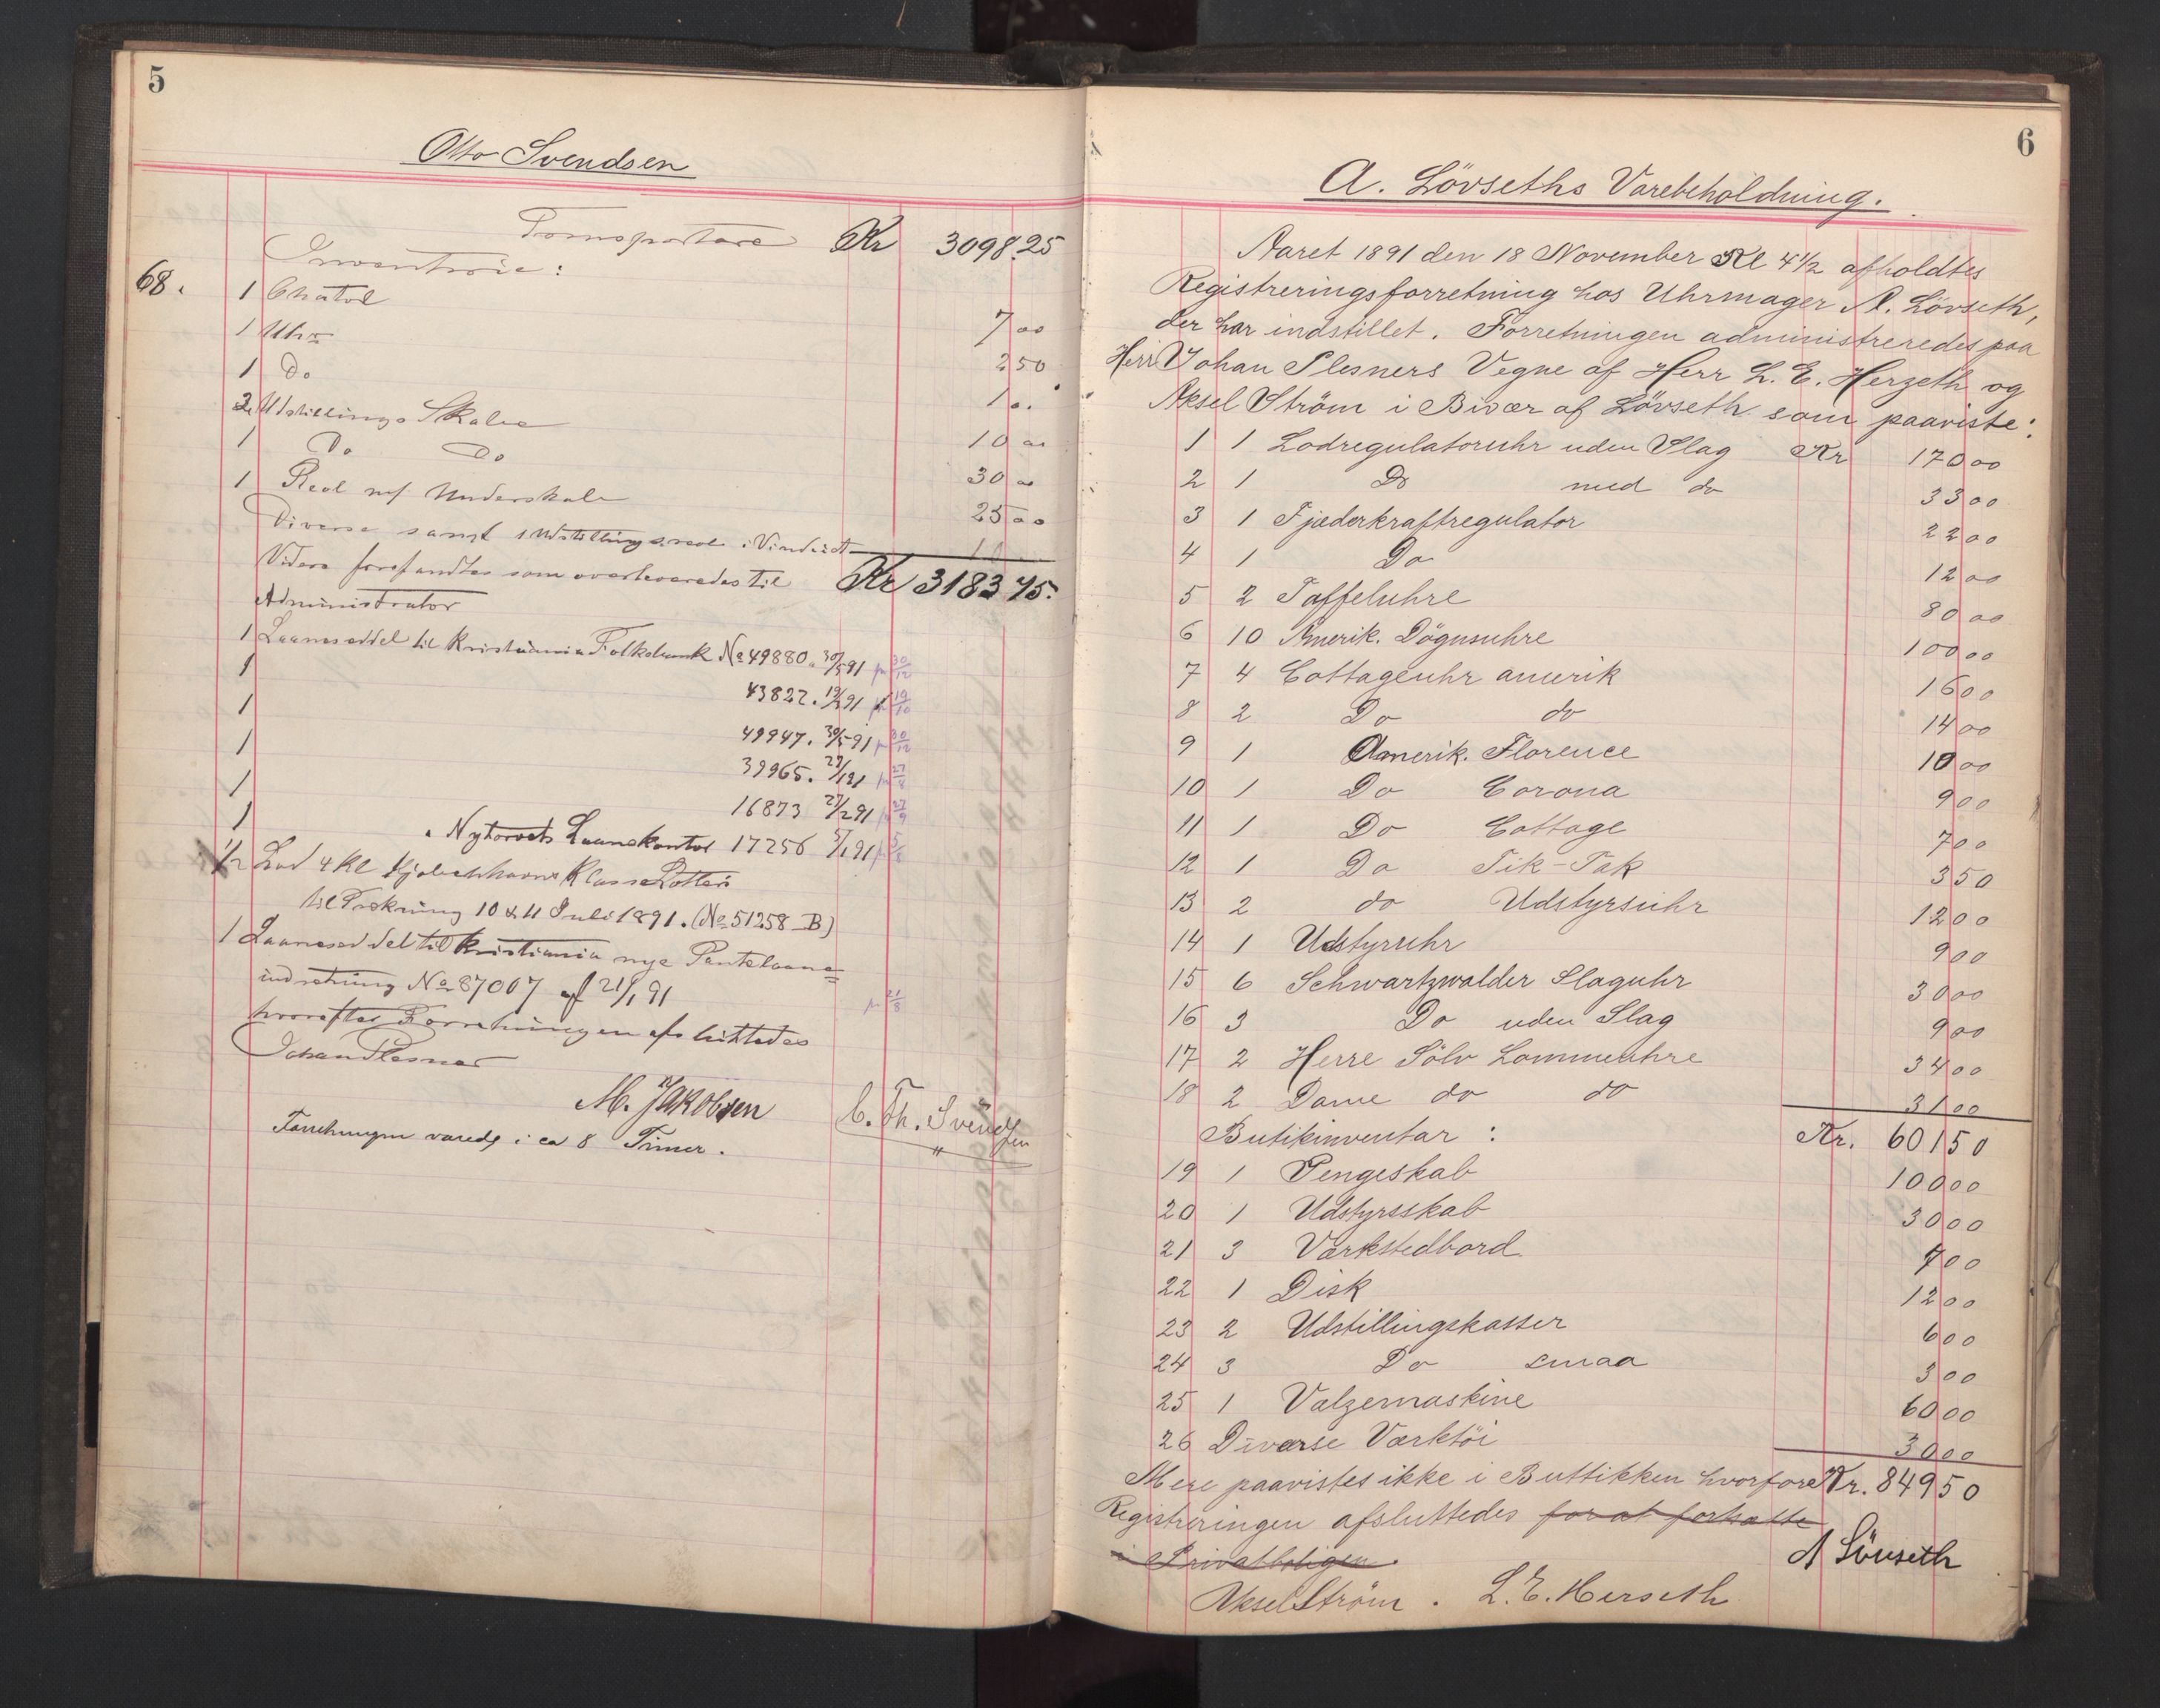 5
Otto Svendsen
Transportere Kr 3098.25
Inventarie:
68. 1 Chatol 7 00
1 Uhr 2 50
1 Do 1 0.
2 Udstillings Skabe 10 00
1 Do Do 30 00
1 Reol m/ Underskabe 25 00
Diverse samt 1 Udstillingsreol i Vinduet 10
Videre forefandtes som overleveredes til Kr 3183 75.
Administrator
1 Laaneseddel til Kristiania Folkebank No 49880. 30/5 91 pr 30/12
1 43822. 19/3 91 pr 19/10
1 49947. 30/5 91 pr 30/12
1 39965. 27/1 91 pr 27/8
1 16873 27/2 91 pr 27/9
1 " Nytorvets Laanekontor 17256 5/1 91 pr 5/8
1/2 Lod 4 Kl Kjøbenhavns Klasse Lotteri
til Trækning 10 & 11 Juli 1891. (No 51258 B)
1 Laaneseddel til Kristiania nye Pantelaane=
indretning No 87007 af 21/1 91 pr 21/8
hvorefter Forretningen afsluttedes
Johan Plesner
M. Jakobsen C. Th. Svendsen
Forretningen varede i ca 8 Timer. "
6
A. Lövseths Varebeholdning.
Aaret 1891 den 18 November Kl 4 1/2 afholdtes
Registreringsforretning hos Uhrmager A. Lövseth,
der har indstillet. Forretningen administreredes paa
Herr Johan Plesners Vegne af Herr L. E. Herzeth og
Aksel Ström i Bivær af Lövseth som paaviste:
1 1 Lodregulatoruhr uden Slag Kr 170 00
2 1 Do med do 33 00
3 1 Fjæderkraftregulator 22 00
4 1 Do 12 00
5 2 Taffeluhre 80 00
6 10 Amerik. Dögnsuhre 100 00
7 4 Cottageuhr amerik 16 00
8 2 Do do 14 00
9 1 Amerik. Florence 10 00
10 1 Do Corona 9 00
11 1 Do Cottage 7 00
12 1 Do Tik-Tak 3 50
13 2 do Udstyrsuhr 12 00
14 1 Udstyruhr 9 00
15 6 Schwartzwalder Slaguhr 30 00
16 3 Do uden Slag 9 00
17 2 Herre Sölv Lommeuhre 34 00
18 2 Dame do do 31 00
Butikinventar: Kr. 601 50
19 1 Pengeskab 100 00
20 1 Udstyrsskab 30 00
21 3 Værkstedbord 7 00
22 1 Disk 12 00
23 2 Udstillingskasser 6 00
24 3 Do smaa 3 00
25 1 Valzemaskine 60 00
26 Diverse Værktöi 30 00
Mere paavistes ikke i Buttikken hvorfore Kr. 849 50
Registreringen afsluttedes for at fortsætte
i Privatboligen.
A Lövseth
Aksel Ström. L. E. Herseth